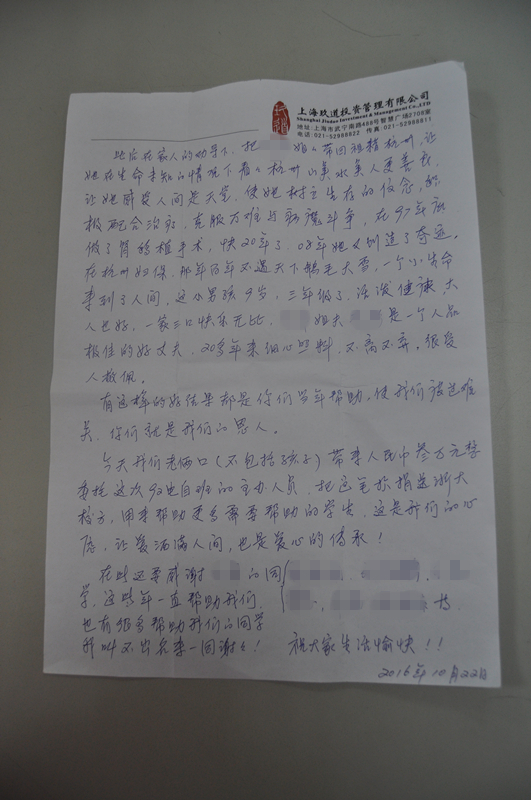 上海玖道投资管理有限公司
Shanghai Jiudao Investment & Management Co.,LTD
地址:上海市武宁南路488号智慧广场2708室
电话:021-52988822 传真:021-52988811
此后在家人的劝导下,把 姐(带回祖籍杭州,让
她在生命未知的情况下看看杭州山美水美人更善良,
让她感觉人间是天堂,使她树立生存的信念,积
极配合治疗,克服万难与病魔斗争,在97年底
做了肾移植手术,快20年了,08年她又创造了奇迹。
在杭州妇保,那年百年不遇天下鹅毛大雪,一个小生命
来到了人间,这小男孩9岁,三年级了,活泼健康,大
人也好,一家三口快乐无比, 姐夫 是一个人品
极佳的好丈夫,20多年来细心照料,不离不弃,很受
人敬佩。
有这样的好结果都是你们当年帮助,使我们渡过难
关,你们就是我们的恩人。
今天我们老俩口(不包括孩子)带来人民币叁万元整
委托这次92电自班的主办人员,把这笔款捐送浙大
校方,用来帮助更多需要帮助的学生,这是我们的心
愿,让爱洒满人间,也是爱心的传承!
在此还要感谢 的同
学,这些年一直帮助我们,
也有很多帮助我们的同学
我叫不出名来一同谢谢!
祝大家生活愉快!!
2016年10月22日